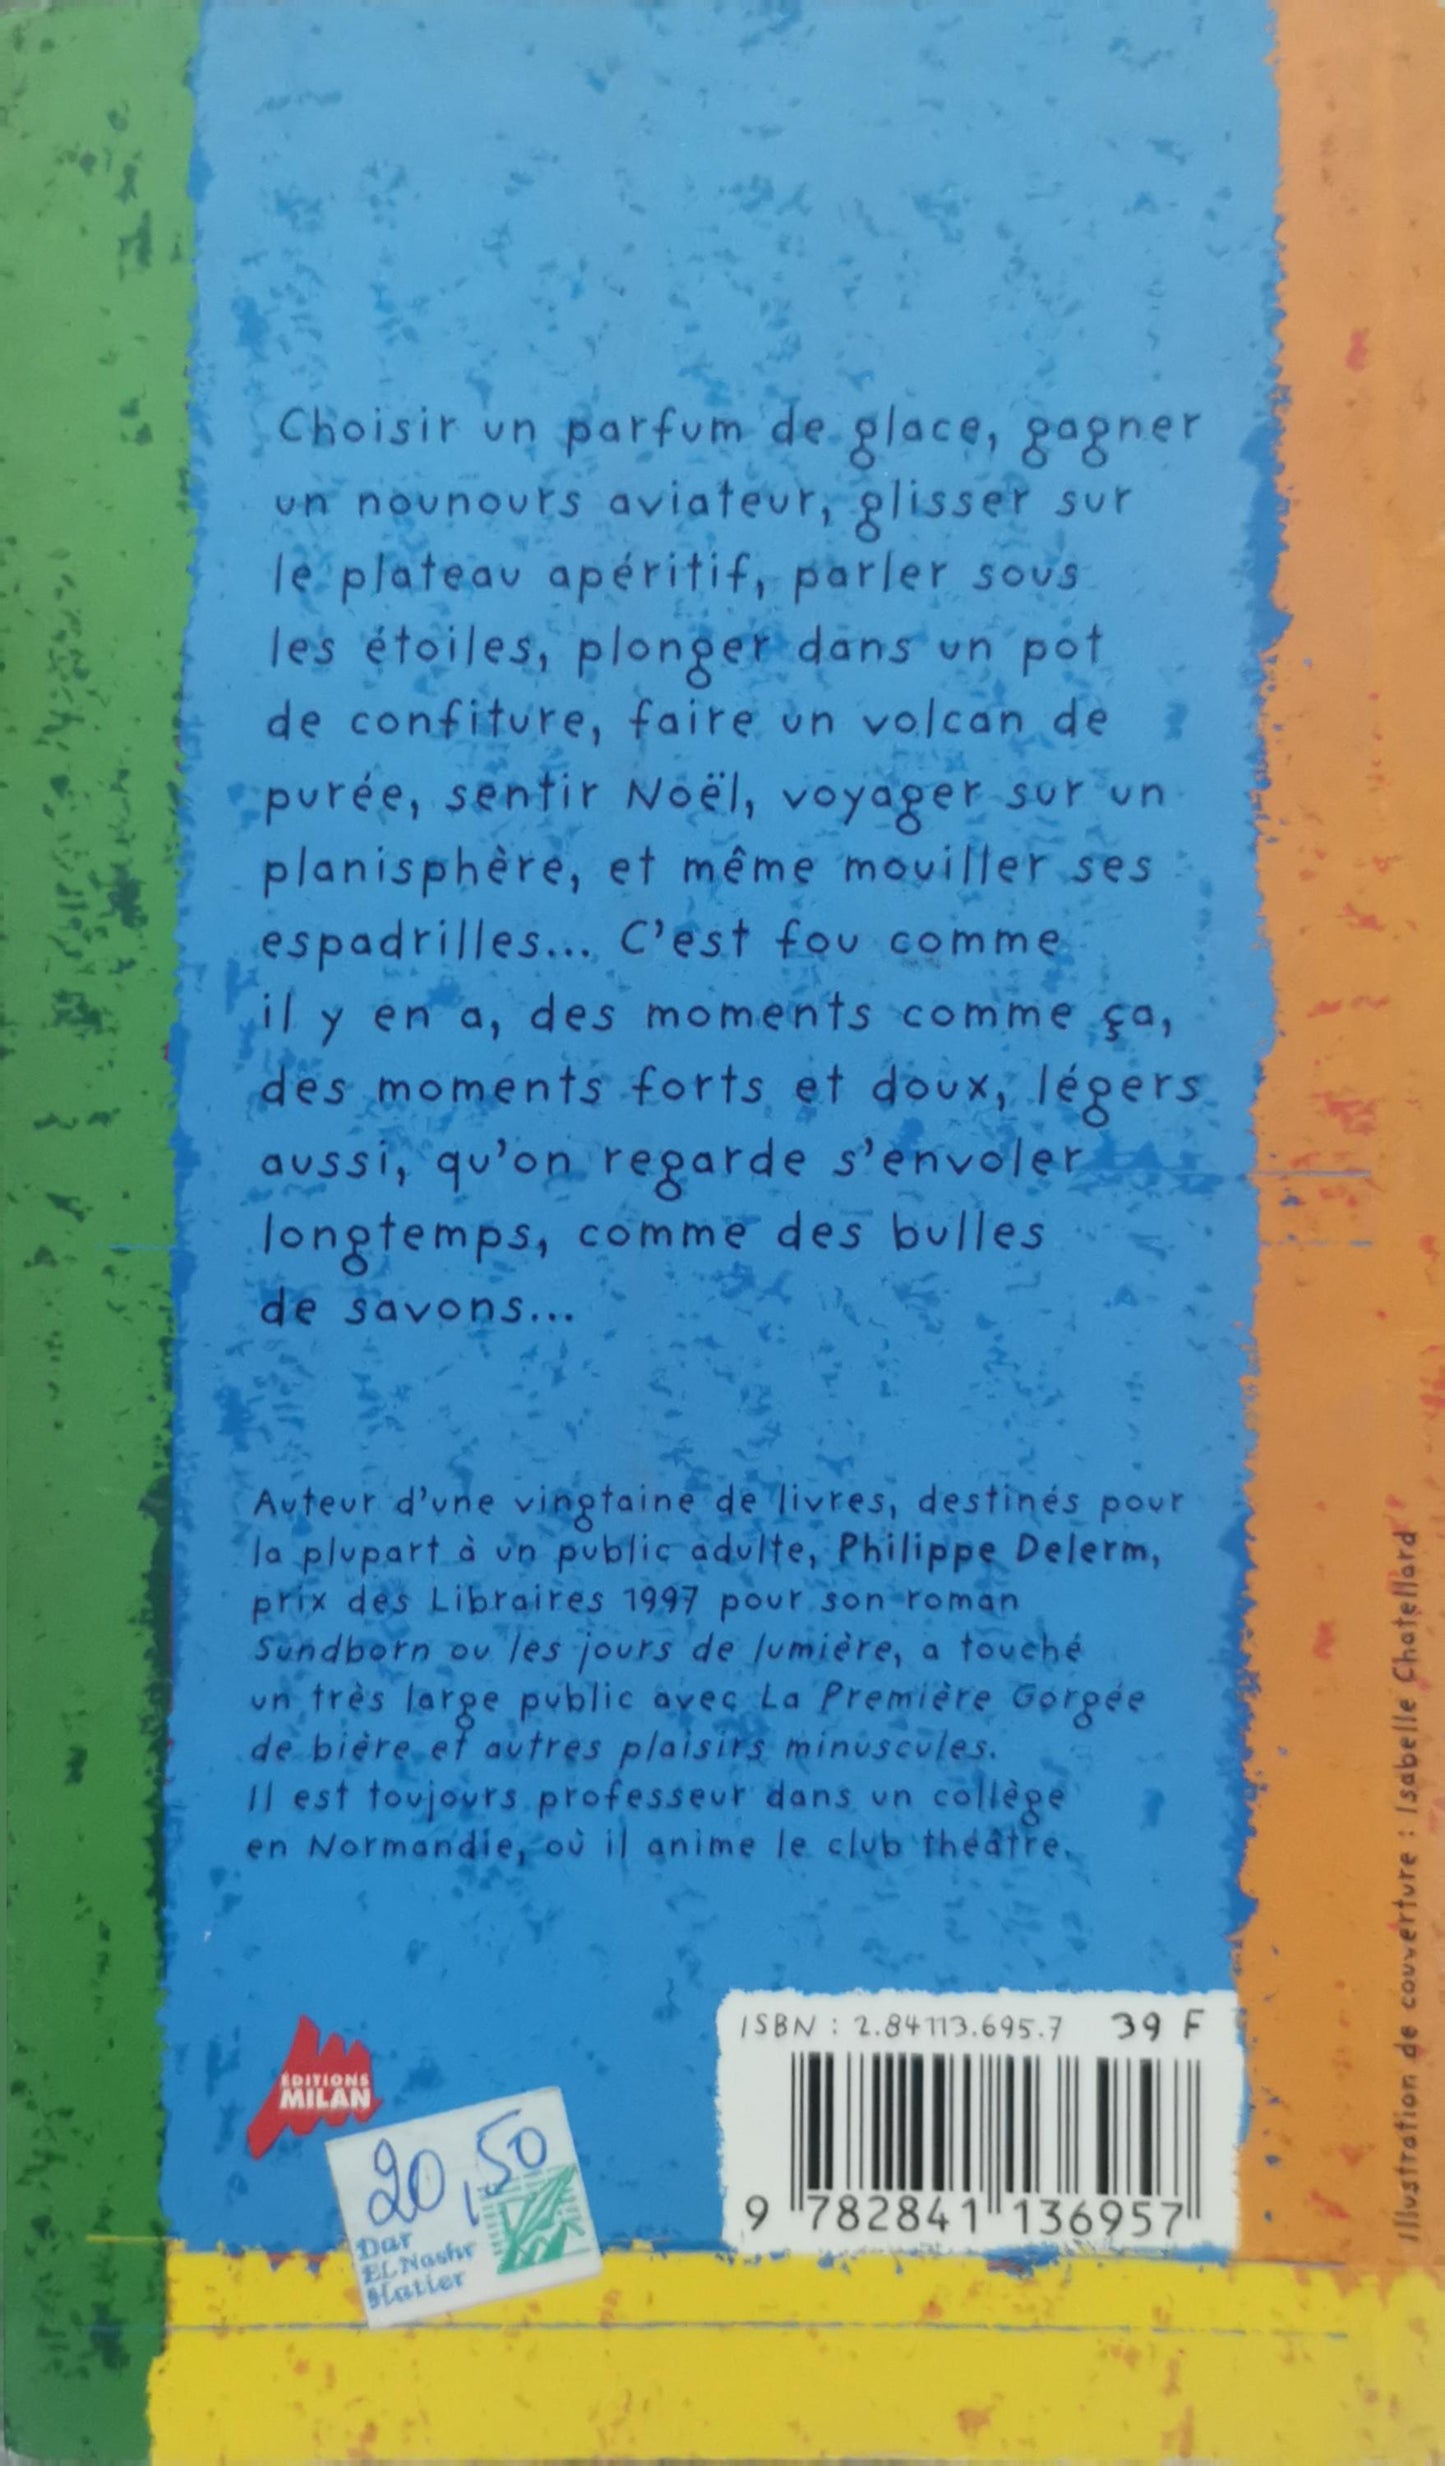 Choisir un parfum de glace, gagner
un nounours aviateur, glisser sur
le plateau apéritif, parler sous
les étoiles, plonger dans un pot
de confiture, faire un volcan de
purée, sentir Noël, voyager sur un
planisphère, et même mouiller ses
espadrilles... C'est fou comme
il y en a, des moments comme ça,
des moments forts et doux, légers
aussi, qu'on regarde s'envoler
longtemps, comme des bulles
de savons...
Auteur d'une vingtaine de livres, destinés pour
la plupart à un public adulte, Philippe Delerm,
prix des Libraires 1997 pour son roman
Sundborn ou les jours de lumière, a touché
un très large public avec La Première Gorgée
de bière et autres plaisirs minuscules.
Il est toujours professeur dans un collège
en Normandie, où il anime le club théâtre.
ÉDITIONS
MILAN
20,50
Dar
EL Nashr
Hatier
ISBN : 2.84113.695.7 39 F
9 782841 136957
Illustration de couverture : Isabelle Chatellard